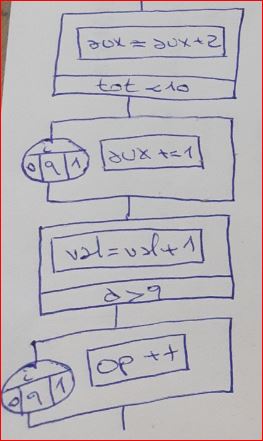 aux = aux+2
tot < 10
c
0 9 1
aux += 1
val = val + 1
a > 9
c
0 9 1
op ++